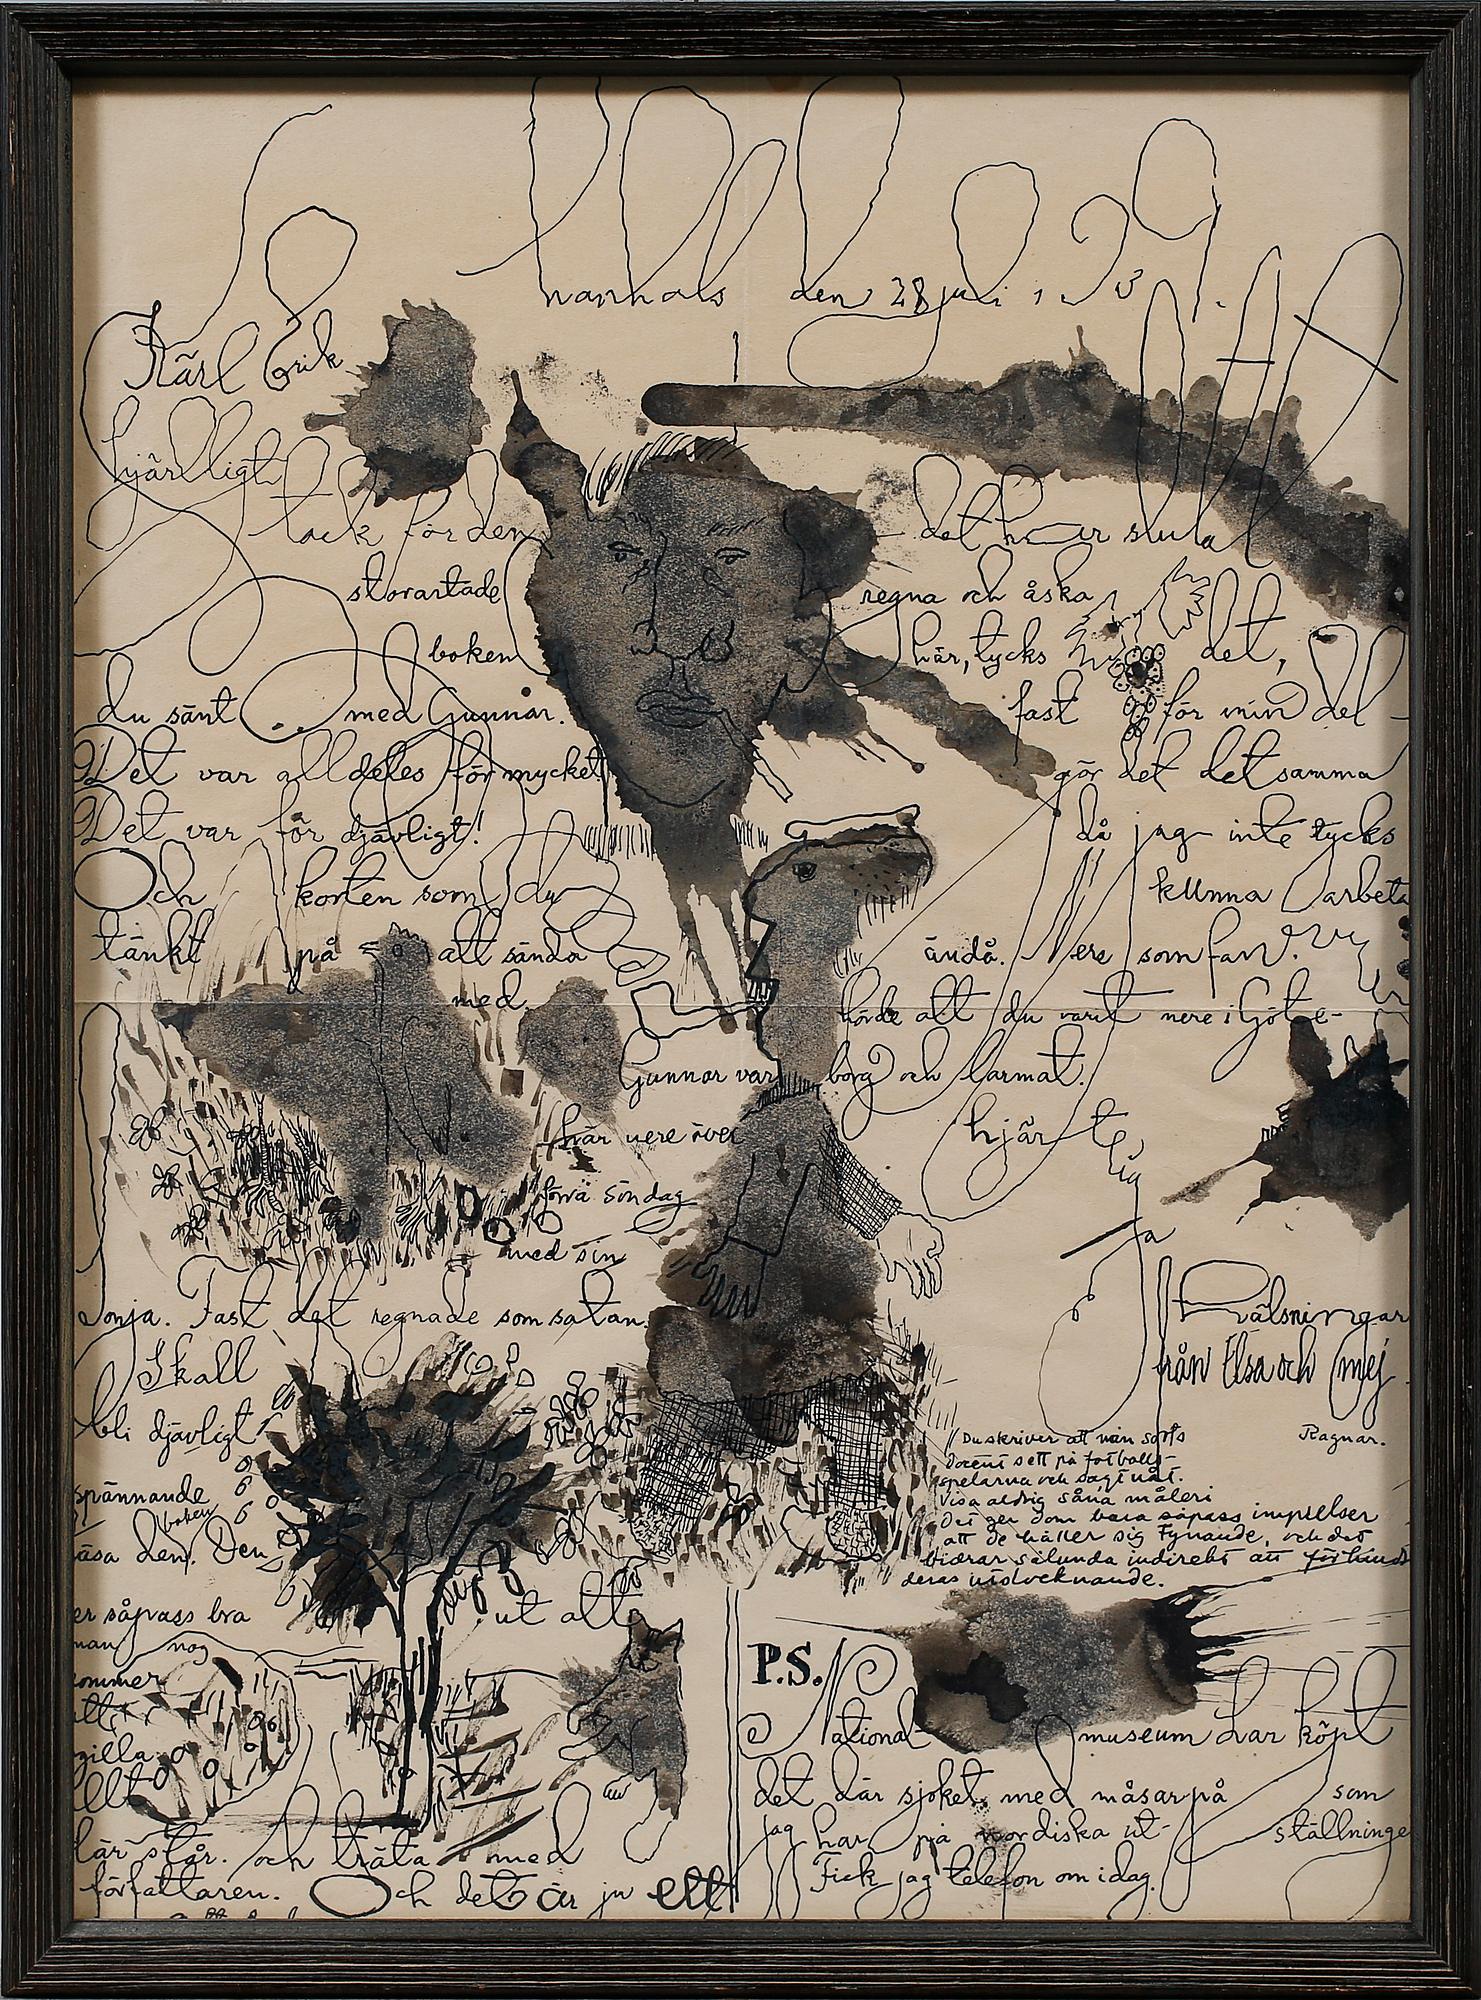 den 28 juli
Karl Erik
hjärtligt
tack för den
storartade
boken
du sänt med Gunnar.
Det var alldeles för mycket
Det var för djävligt!
Och korten som du
tänkt på att sända
med.
Gunnar var
här nere över
förra söndag
med sin
Sonja. Fast det regnade som satan.
Skall
bli djävligt
spännande
läsa den boken. Den
er såpass bra
man nog
ommer
gilla
allt
där står. och träta med
författaren. Och det är ju ett
ut att
det här sluta
regna och åska
här, tycks det,
fast för min del
gör det detsamma
då jag inte tycks
kunna arbeta
ändå. Mere som fan.
hörde att du varit nere i Göte-
borg och larmat.
hjärtliga
hälsningar
från Elsa och mej
Ragnar.
Du skriver att min sorts
docent sett på fotbolls-
spelarna och sagt nåt.
Visa aldrig såna måleri
Det ger dom bara såpass impulser
att de håller sig flytande, och det
bidrar sålunda indirekt att förhindra
deras utslocknande.
P.S.
National museum har köpt
det där sjoket med måsar på som
jag har på nordiska ut- ställningen
Fick jag telefon om idag.